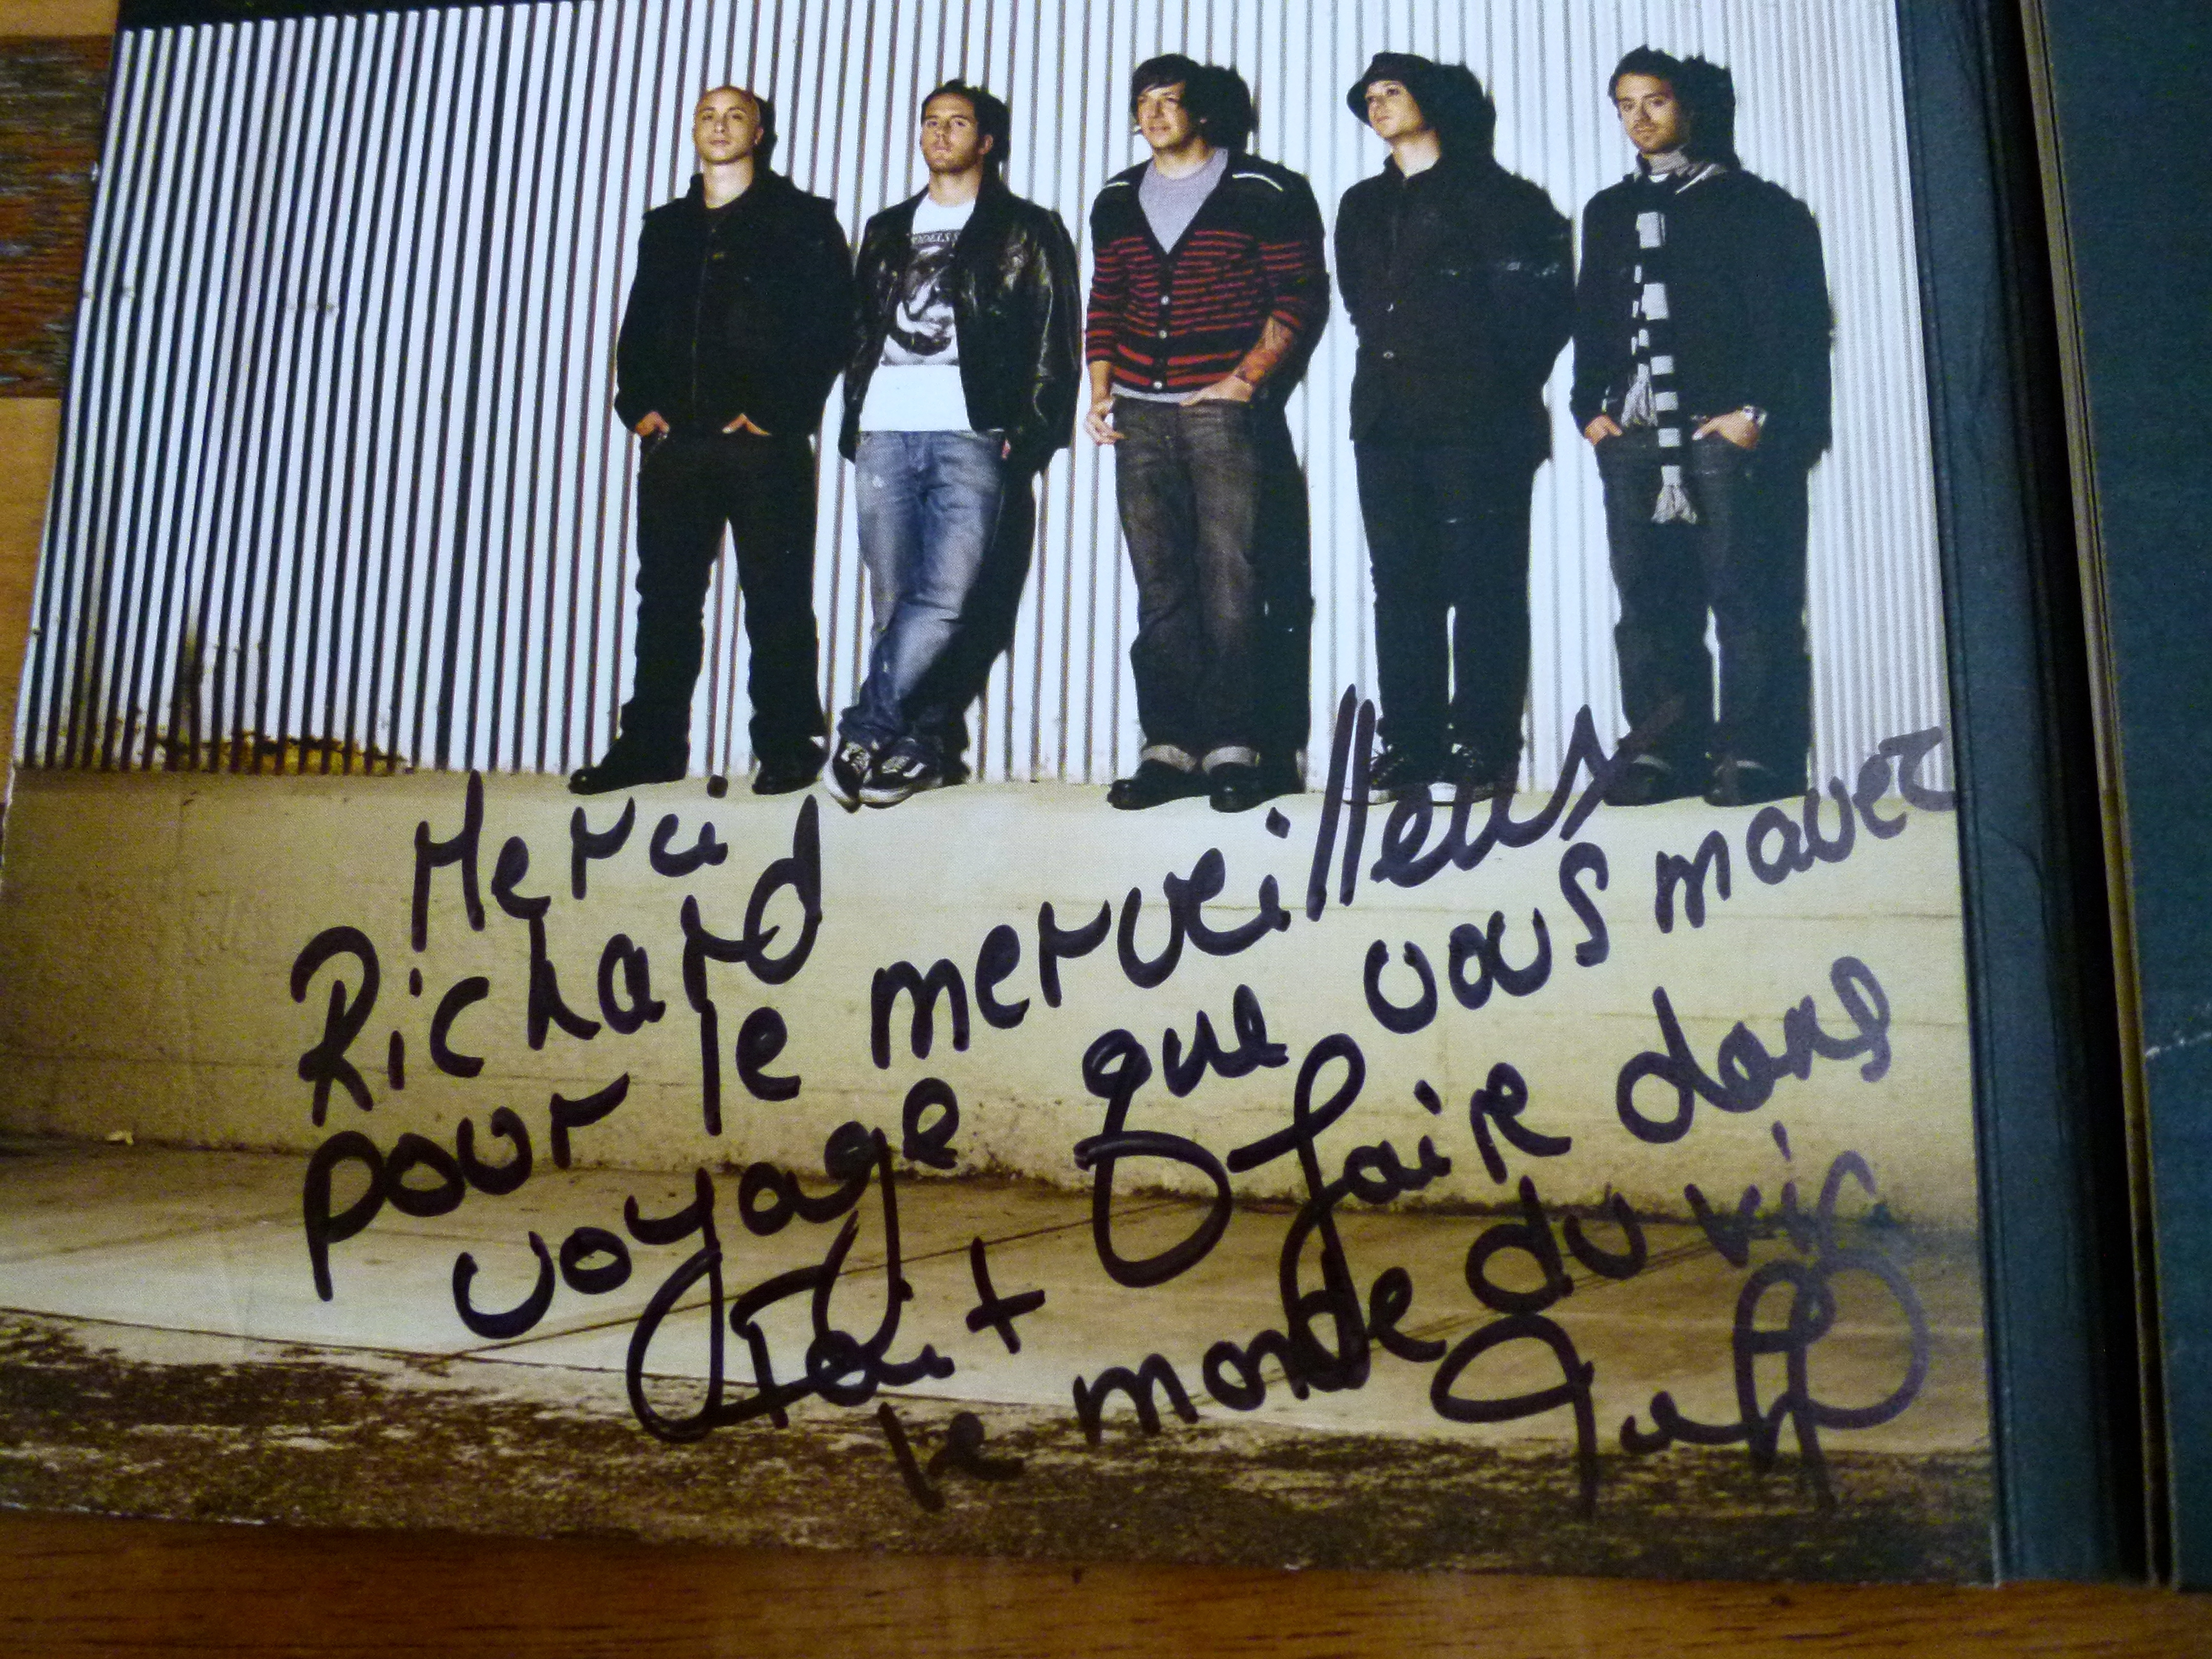 ODELS
Merci
Richard
pour le merveilleux
voyage que vous maver
Fait faire dans
le monde du vin